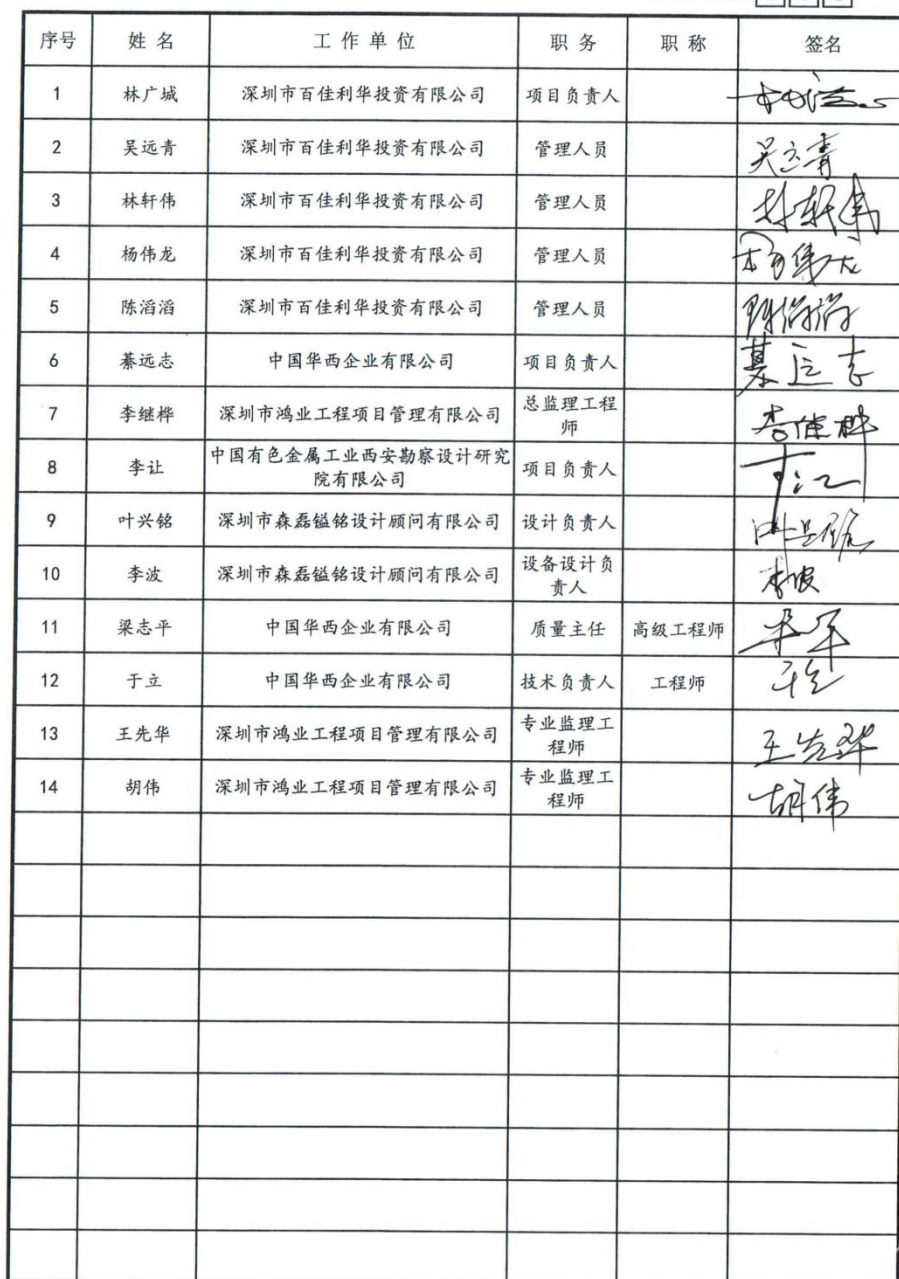 序号 姓名 工作单位 职务 职称 签名
1 林广城 深圳市百佳利华投资有限公司 项目负责人
2 吴远青 深圳市百佳利华投资有限公司 管理人员 吴远青
3 林轩伟 深圳市百佳利华投资有限公司 管理人员 林轩伟
4 杨伟龙 深圳市百佳利华投资有限公司 管理人员 杨伟龙
5 陈滔滔 深圳市百佳利华投资有限公司 管理人员 陈滔滔
6 綦远志 中国华西企业有限公司 项目负责人 綦远志
7 李继桦 深圳市鸿业工程项目管理有限公司 总监理工程
师 李继桦
8 李让 中国有色金属工业西安勘察设计研究
院有限公司 项目负责人
9 叶兴铭 深圳市森磊镒铭设计顾问有限公司 设计负责人 叶兴铭
10 李波 深圳市森磊镒铭设计顾问有限公司 设备设计负
责人 李波
11 梁志平 中国华西企业有限公司 质量主任 高级工程师
12 于立 中国华西企业有限公司 技术负责人 工程师 于立
13 王先华 深圳市鸿业工程项目管理有限公司 专业监理工
程师 王先华
14 胡伟 深圳市鸿业工程项目管理有限公司 专业监理工
程师 胡伟